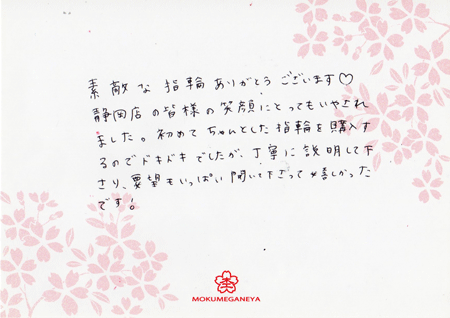 素敵な指輪ありがとうございます♡
静岡店の皆様の笑顔にとってもいやされ
ました。初めてちゃんとした指輪を購入す
るのでドキドキでしたが、丁寧に説明して下
さり、要望もいっぱい聞いて下さって嬉しかった
です!
MOKUMEGANEYA